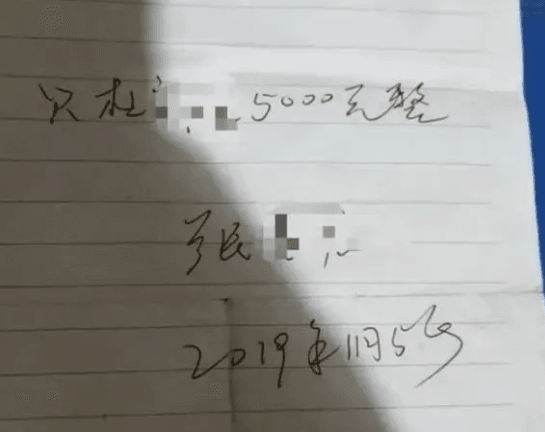 杜 5000元整
张
2019年11月5号